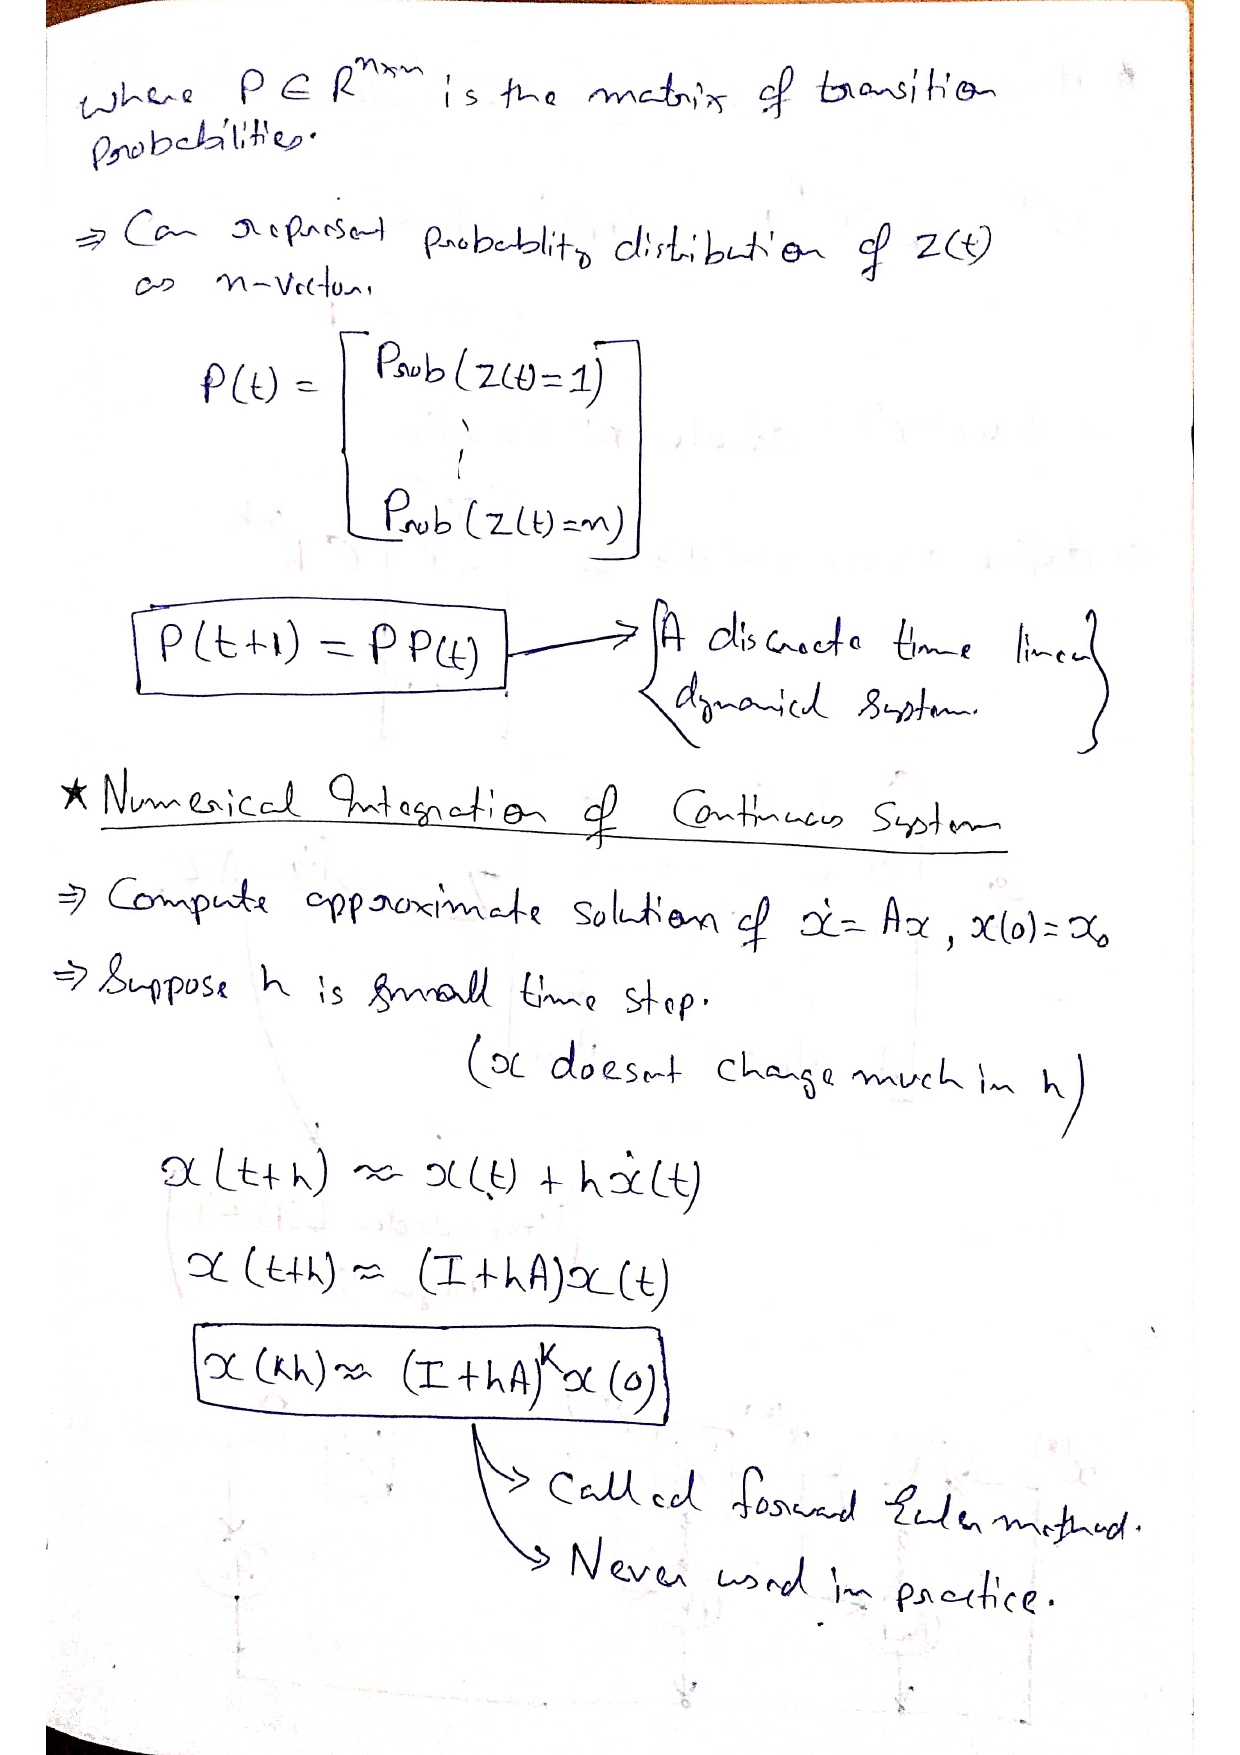 where P ∈ R^{n×n} is the matrix of transition
Probabilities.
⇒ Can represent probablity distribution of z(t)
as n-vector.
P(t) = [ Prob(z(t)=1)
⋮
Prob(z(t)=n) ]
P(t+1) = P P(t) → { A discrete time linear
dynamical system. }
★ Numerical Integration of Continuous System
⇒ Compute approximate solution of ẋ = Ax, x(0) = x₀
⇒ Suppose h is small time step.
(x doesnt change much in h)
x(t+h) ≈ x(t) + hẋ(t)
x(t+h) ≈ (I+hA)x(t)
x(kh) ≈ (I+hA)^k x(0)
→ Called forward Euler method.
→ Never used in practice.